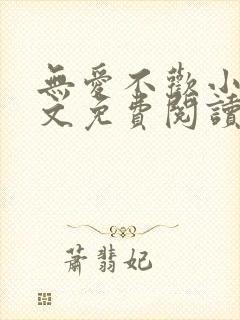 無愛不歡小
文免費閱讀
蕭翡妃